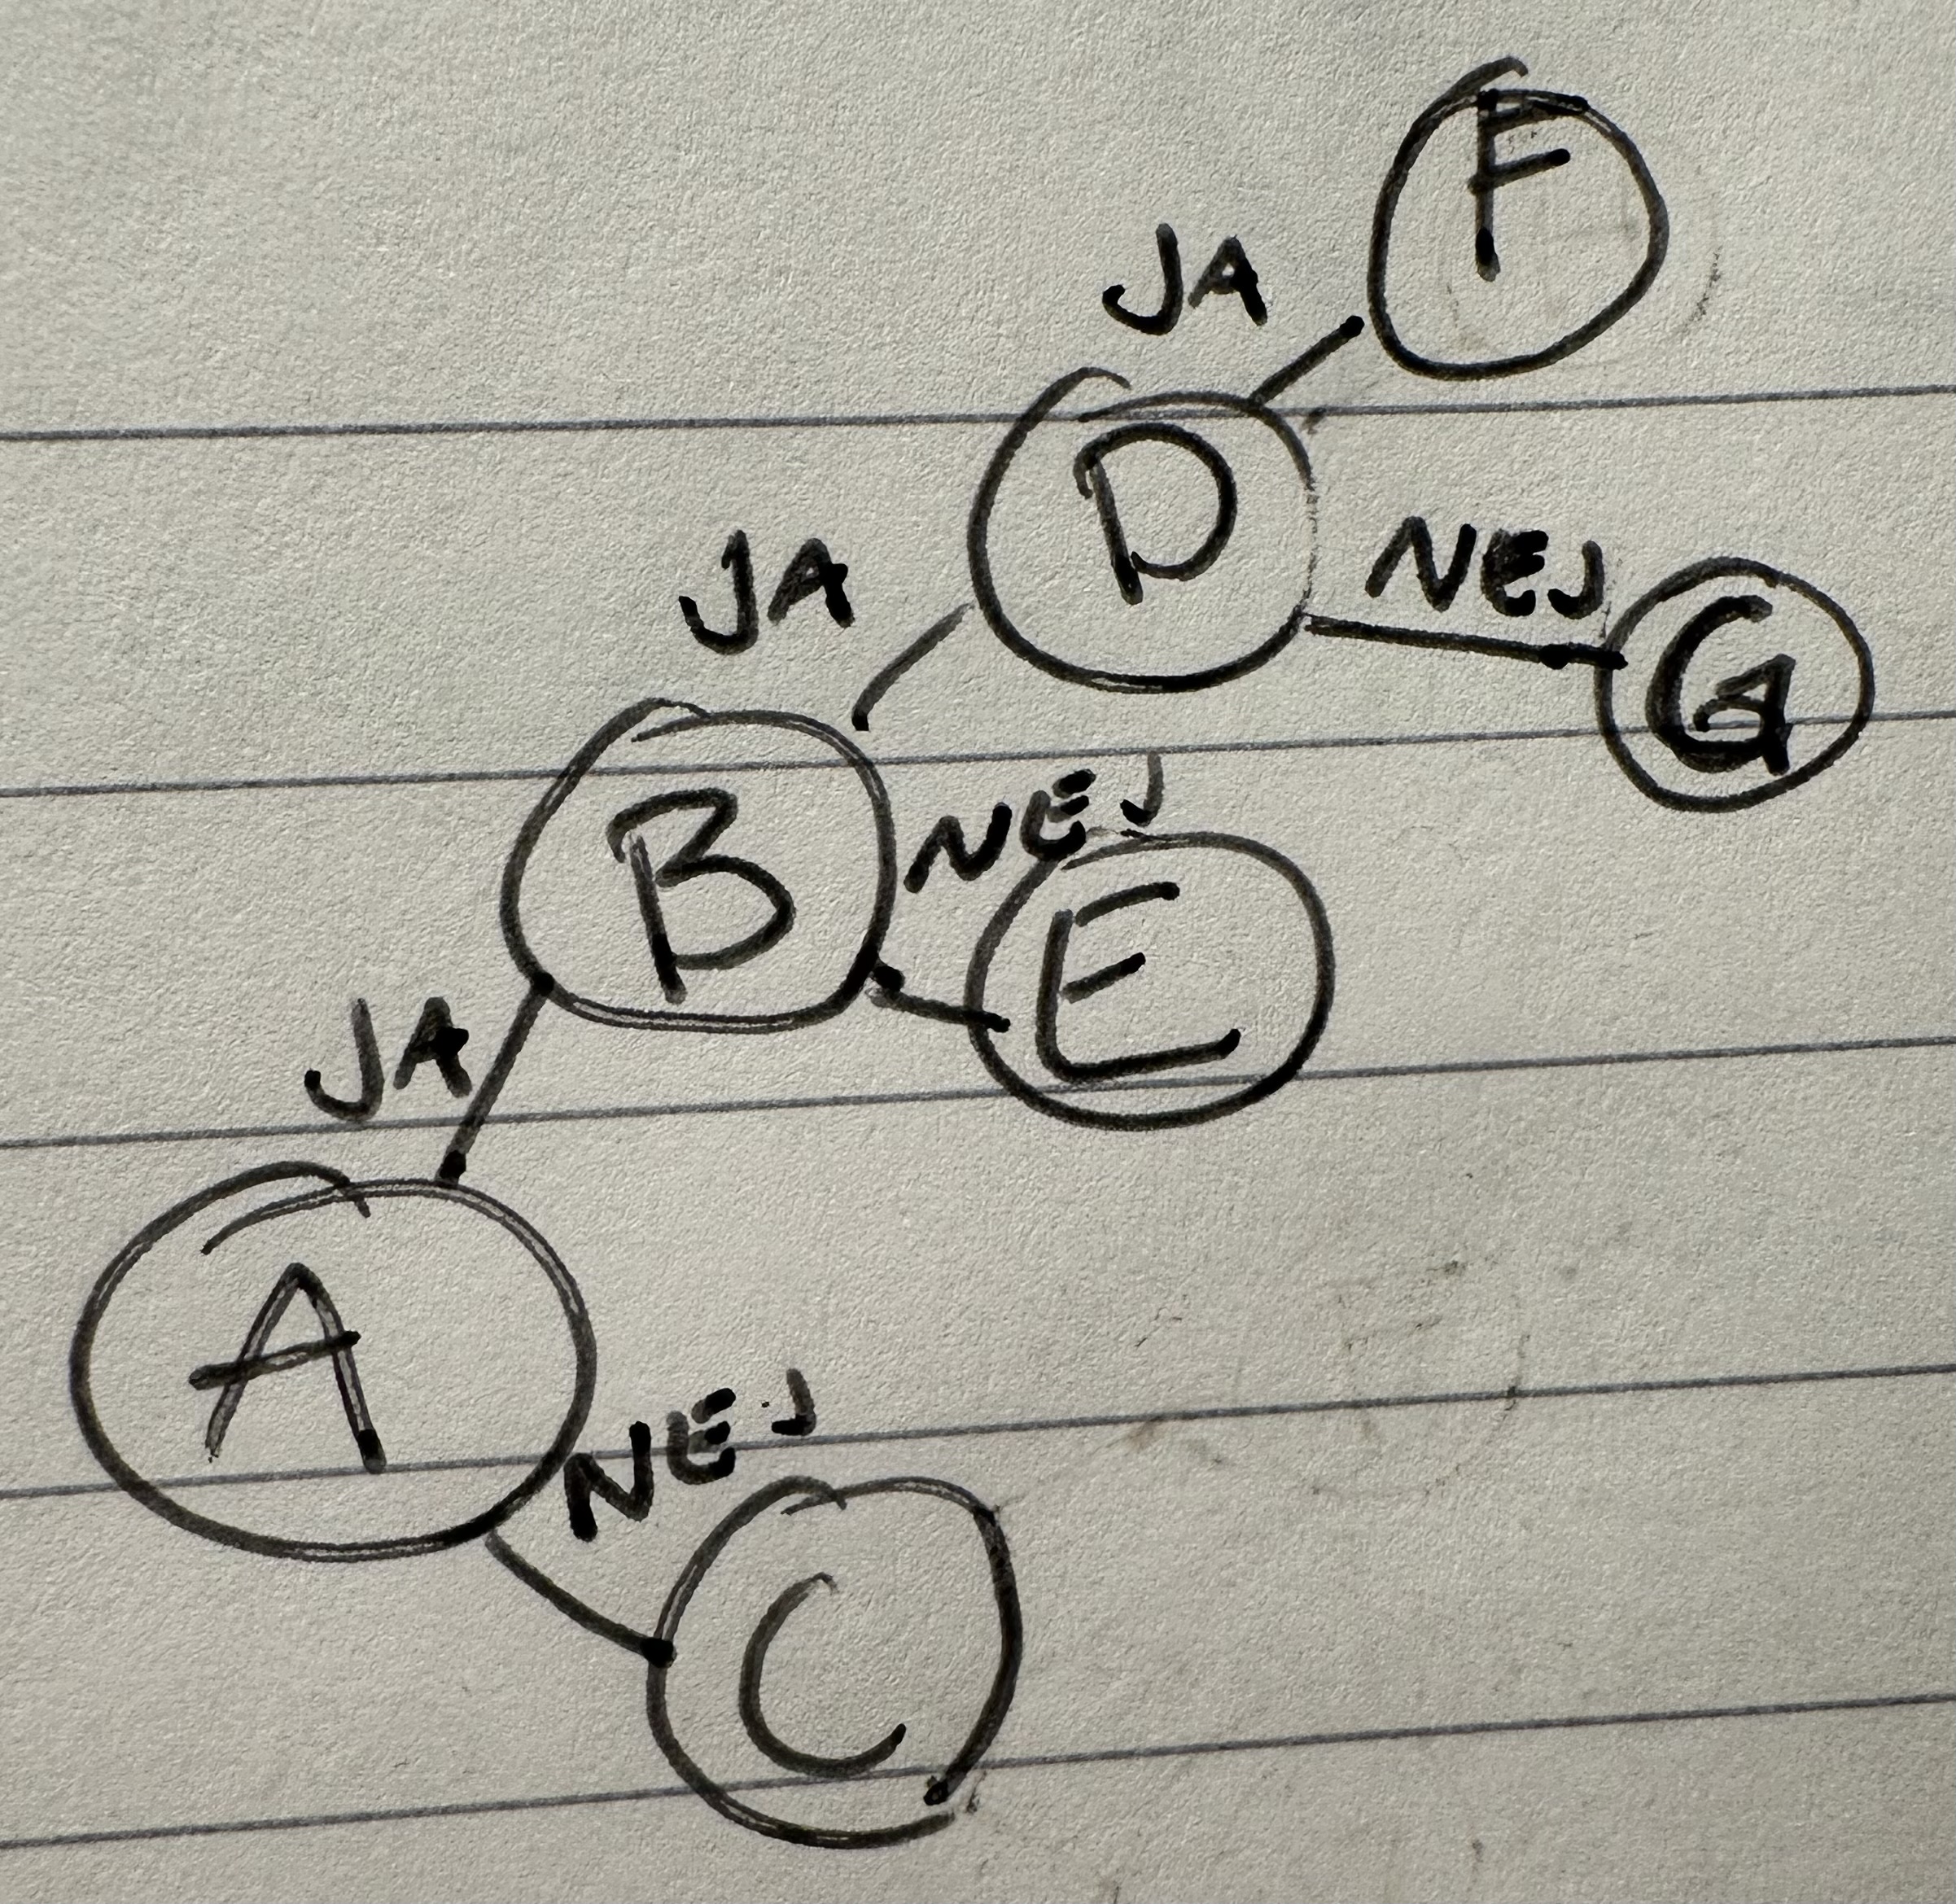 F
JA
D
NEJ
G
JA
B
NEJ
E
JA
A
NEJ
C